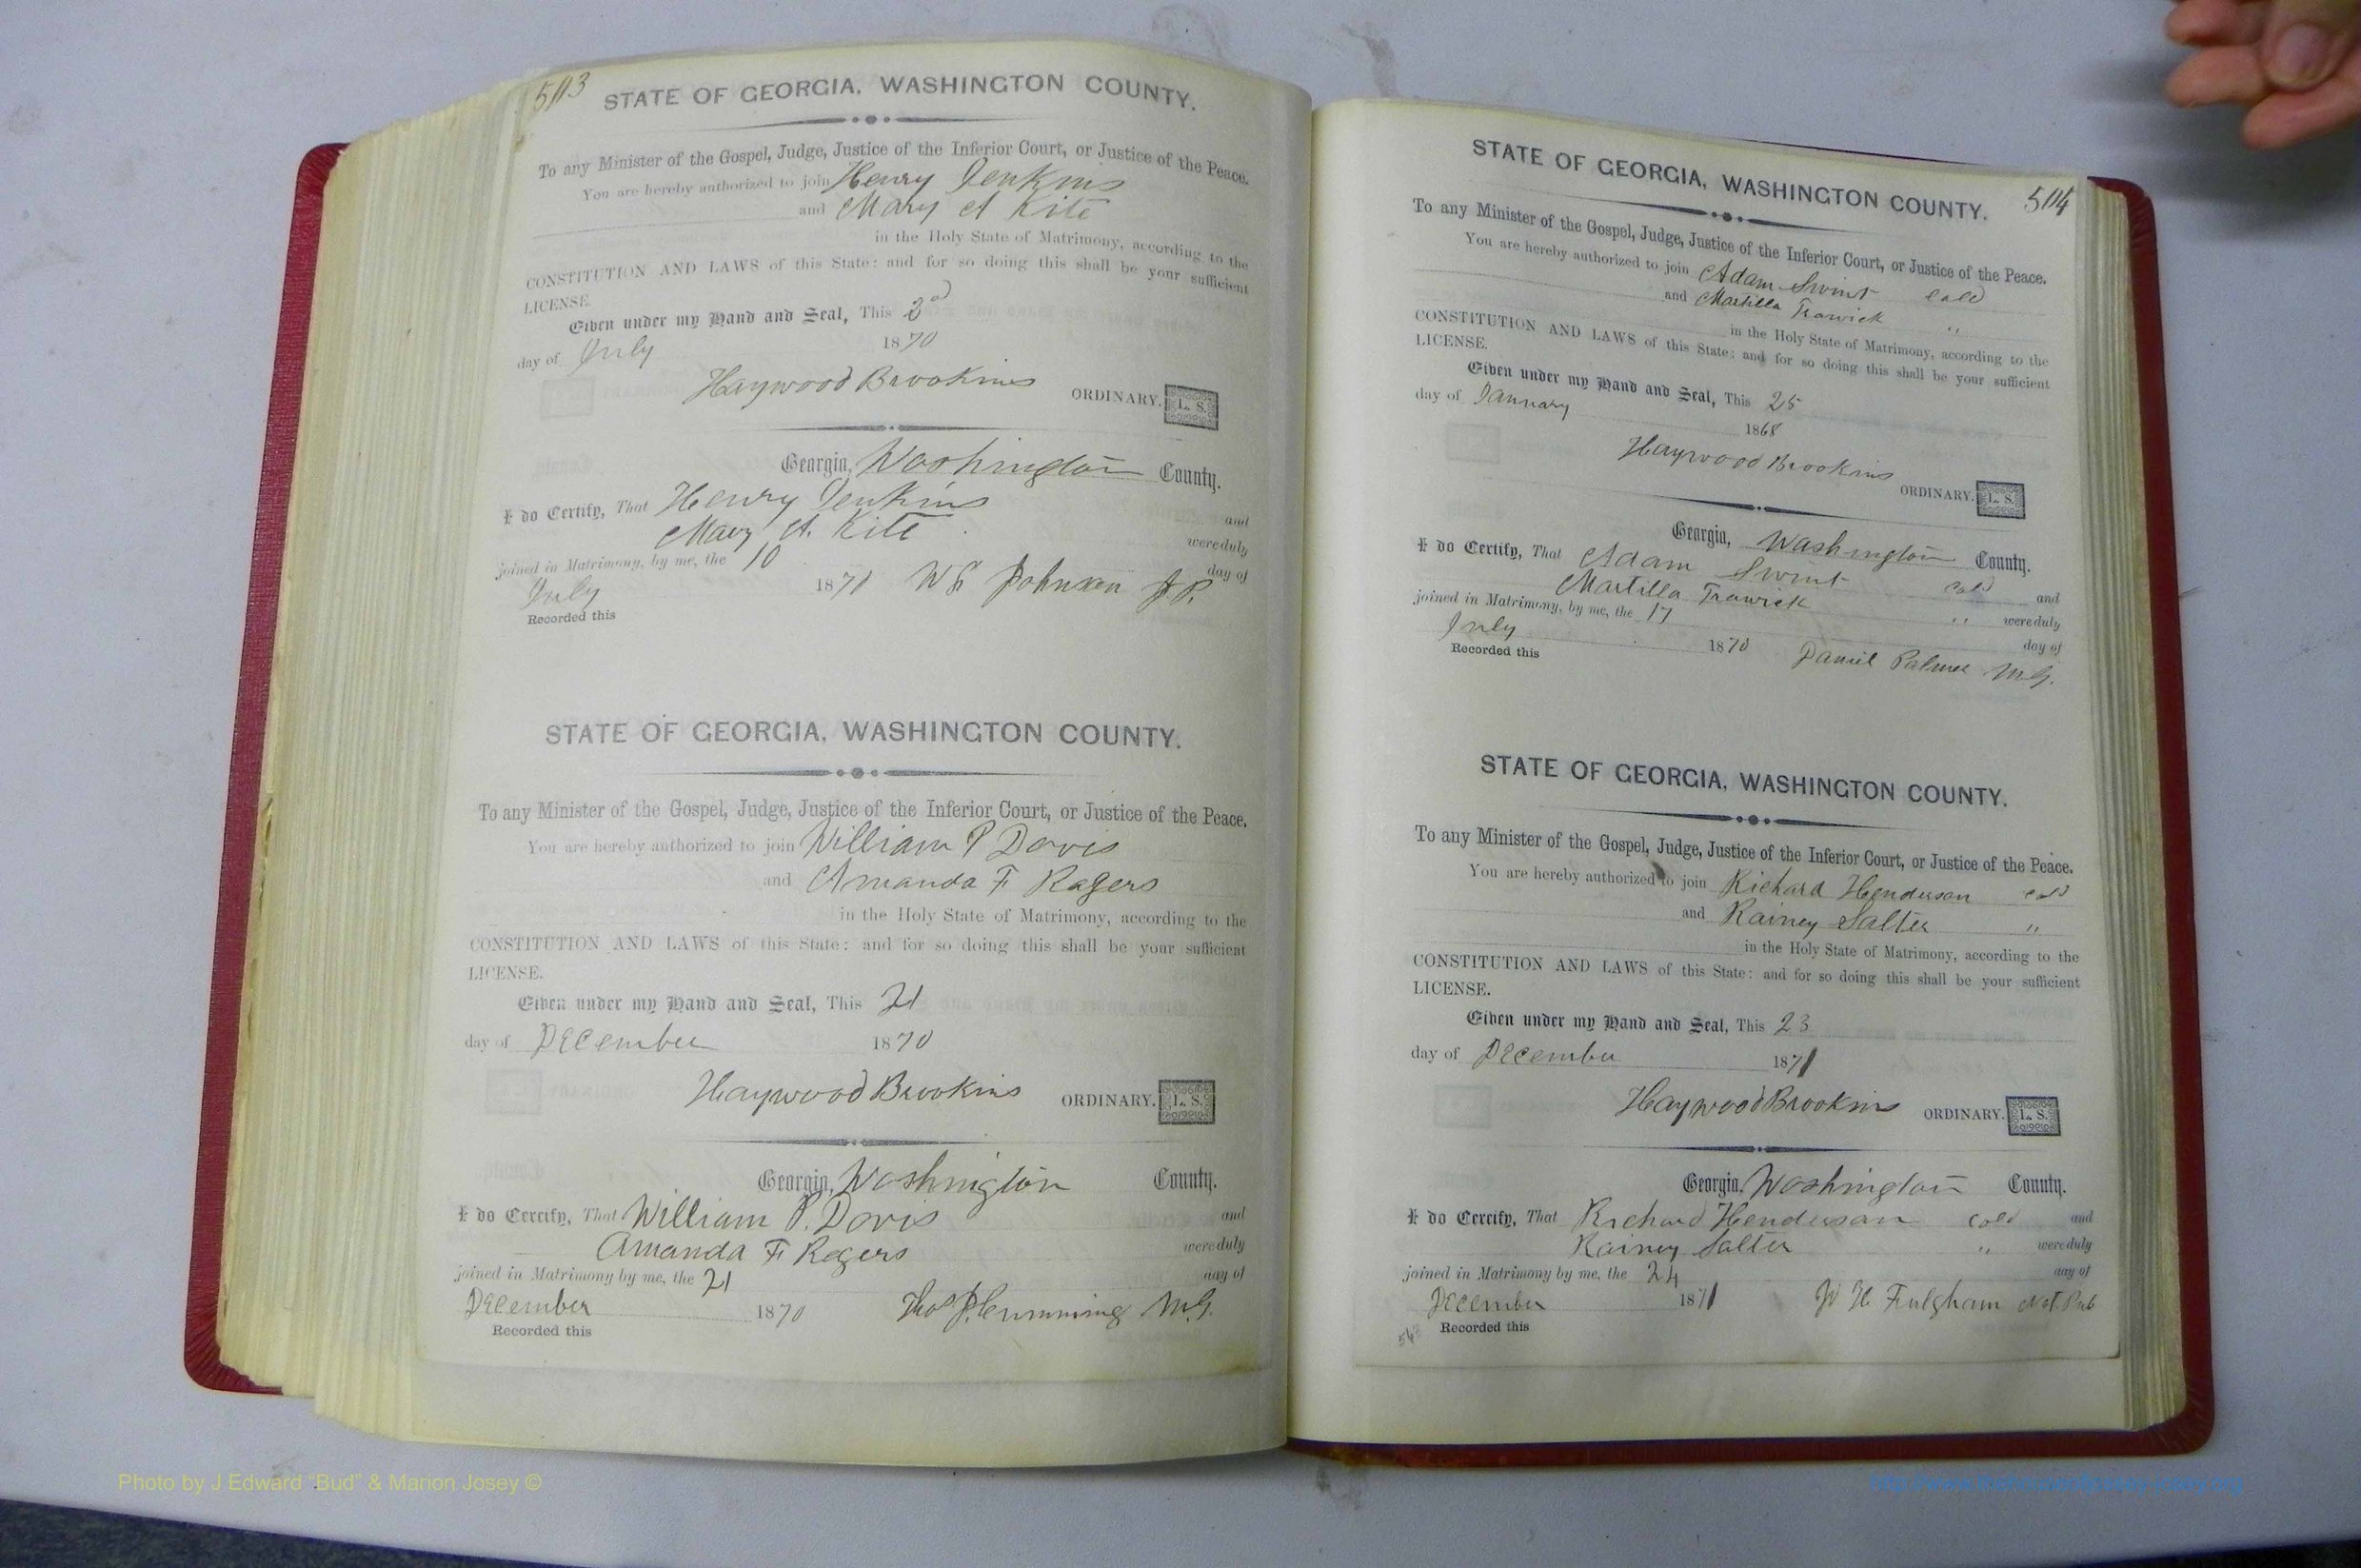 503
STATE OF GEORGIA, WASHINGTON COUNTY.
To any Minister of the Gospel, Judge, Justice of the Inferior Court, or Justice of the Peace.
You are hereby authorized to join Henry Jenkins
and Mary A Kite
in the Holy State of Matrimony, according to the
CONSTITUTION AND LAWS of this State: and for so doing this shall be your sufficient
LICENSE.
Given under my Hand and Seal, This 3d
day of July 1870
Haywood Brookins ORDINARY. L. S.
Georgia, Washington County.
I do Certify, That Henry Jenkins and
Mary A. Kite were duly
joined in Matrimony, by me, the 10 day of
July 1870 Johnson J.P.
Recorded this
STATE OF GEORGIA, WASHINGTON COUNTY.
To any Minister of the Gospel, Judge, Justice of the Inferior Court, or Justice of the Peace.
You are hereby authorized to join William P Davis
and Amanda F Rogers
in the Holy State of Matrimony, according to the
CONSTITUTION AND LAWS of this State: and for so doing this shall be your sufficient
LICENSE.
Given under my Hand and Seal, This 21
day of December 1870
Haywood Brookins ORDINARY. L. S.
Georgia, Washington County.
I do Certify, That William P. Davis and
Amanda F Rogers were duly
joined in Matrimony by me, the 21 day of
December 1870 Thos J. Cumming M.G.
Recorded this
504
STATE OF GEORGIA, WASHINGTON COUNTY.
To any Minister of the Gospel, Judge, Justice of the Inferior Court, or Justice of the Peace.
You are hereby authorized to join Adam Swint cold
and Martilla Trawick "
in the Holy State of Matrimony, according to the
CONSTITUTION AND LAWS of this State: and for so doing this shall be your sufficient
LICENSE.
Given under my Hand and Seal, This 25
day of January 1868
Haywood Brookins ORDINARY. L. S.
Georgia, Washington County.
I do Certify, That Adam Swint cold and
Martilla Trawick " were duly
joined in Matrimony, by me, the 17 day of
July 1870 Daniel Palmer M.G.
Recorded this
STATE OF GEORGIA, WASHINGTON COUNTY.
To any Minister of the Gospel, Judge, Justice of the Inferior Court, or Justice of the Peace.
You are hereby authorized to join Richard Henderson cold
and Rainey Salter "
in the Holy State of Matrimony, according to the
CONSTITUTION AND LAWS of this State: and for so doing this shall be your sufficient
LICENSE.
Given under my Hand and Seal, This 23
day of December 1871
Haywood Brookins ORDINARY. L. S.
Georgia, Washington County.
I do Certify, That Richard Henderson cold and
Rainey Salter " were duly
joined in Matrimony by me, the 24 day of
December 1871 W H Fulgham Not. Pub
Recorded this
Photo by J Edward "Bud" & Marion Josey ©